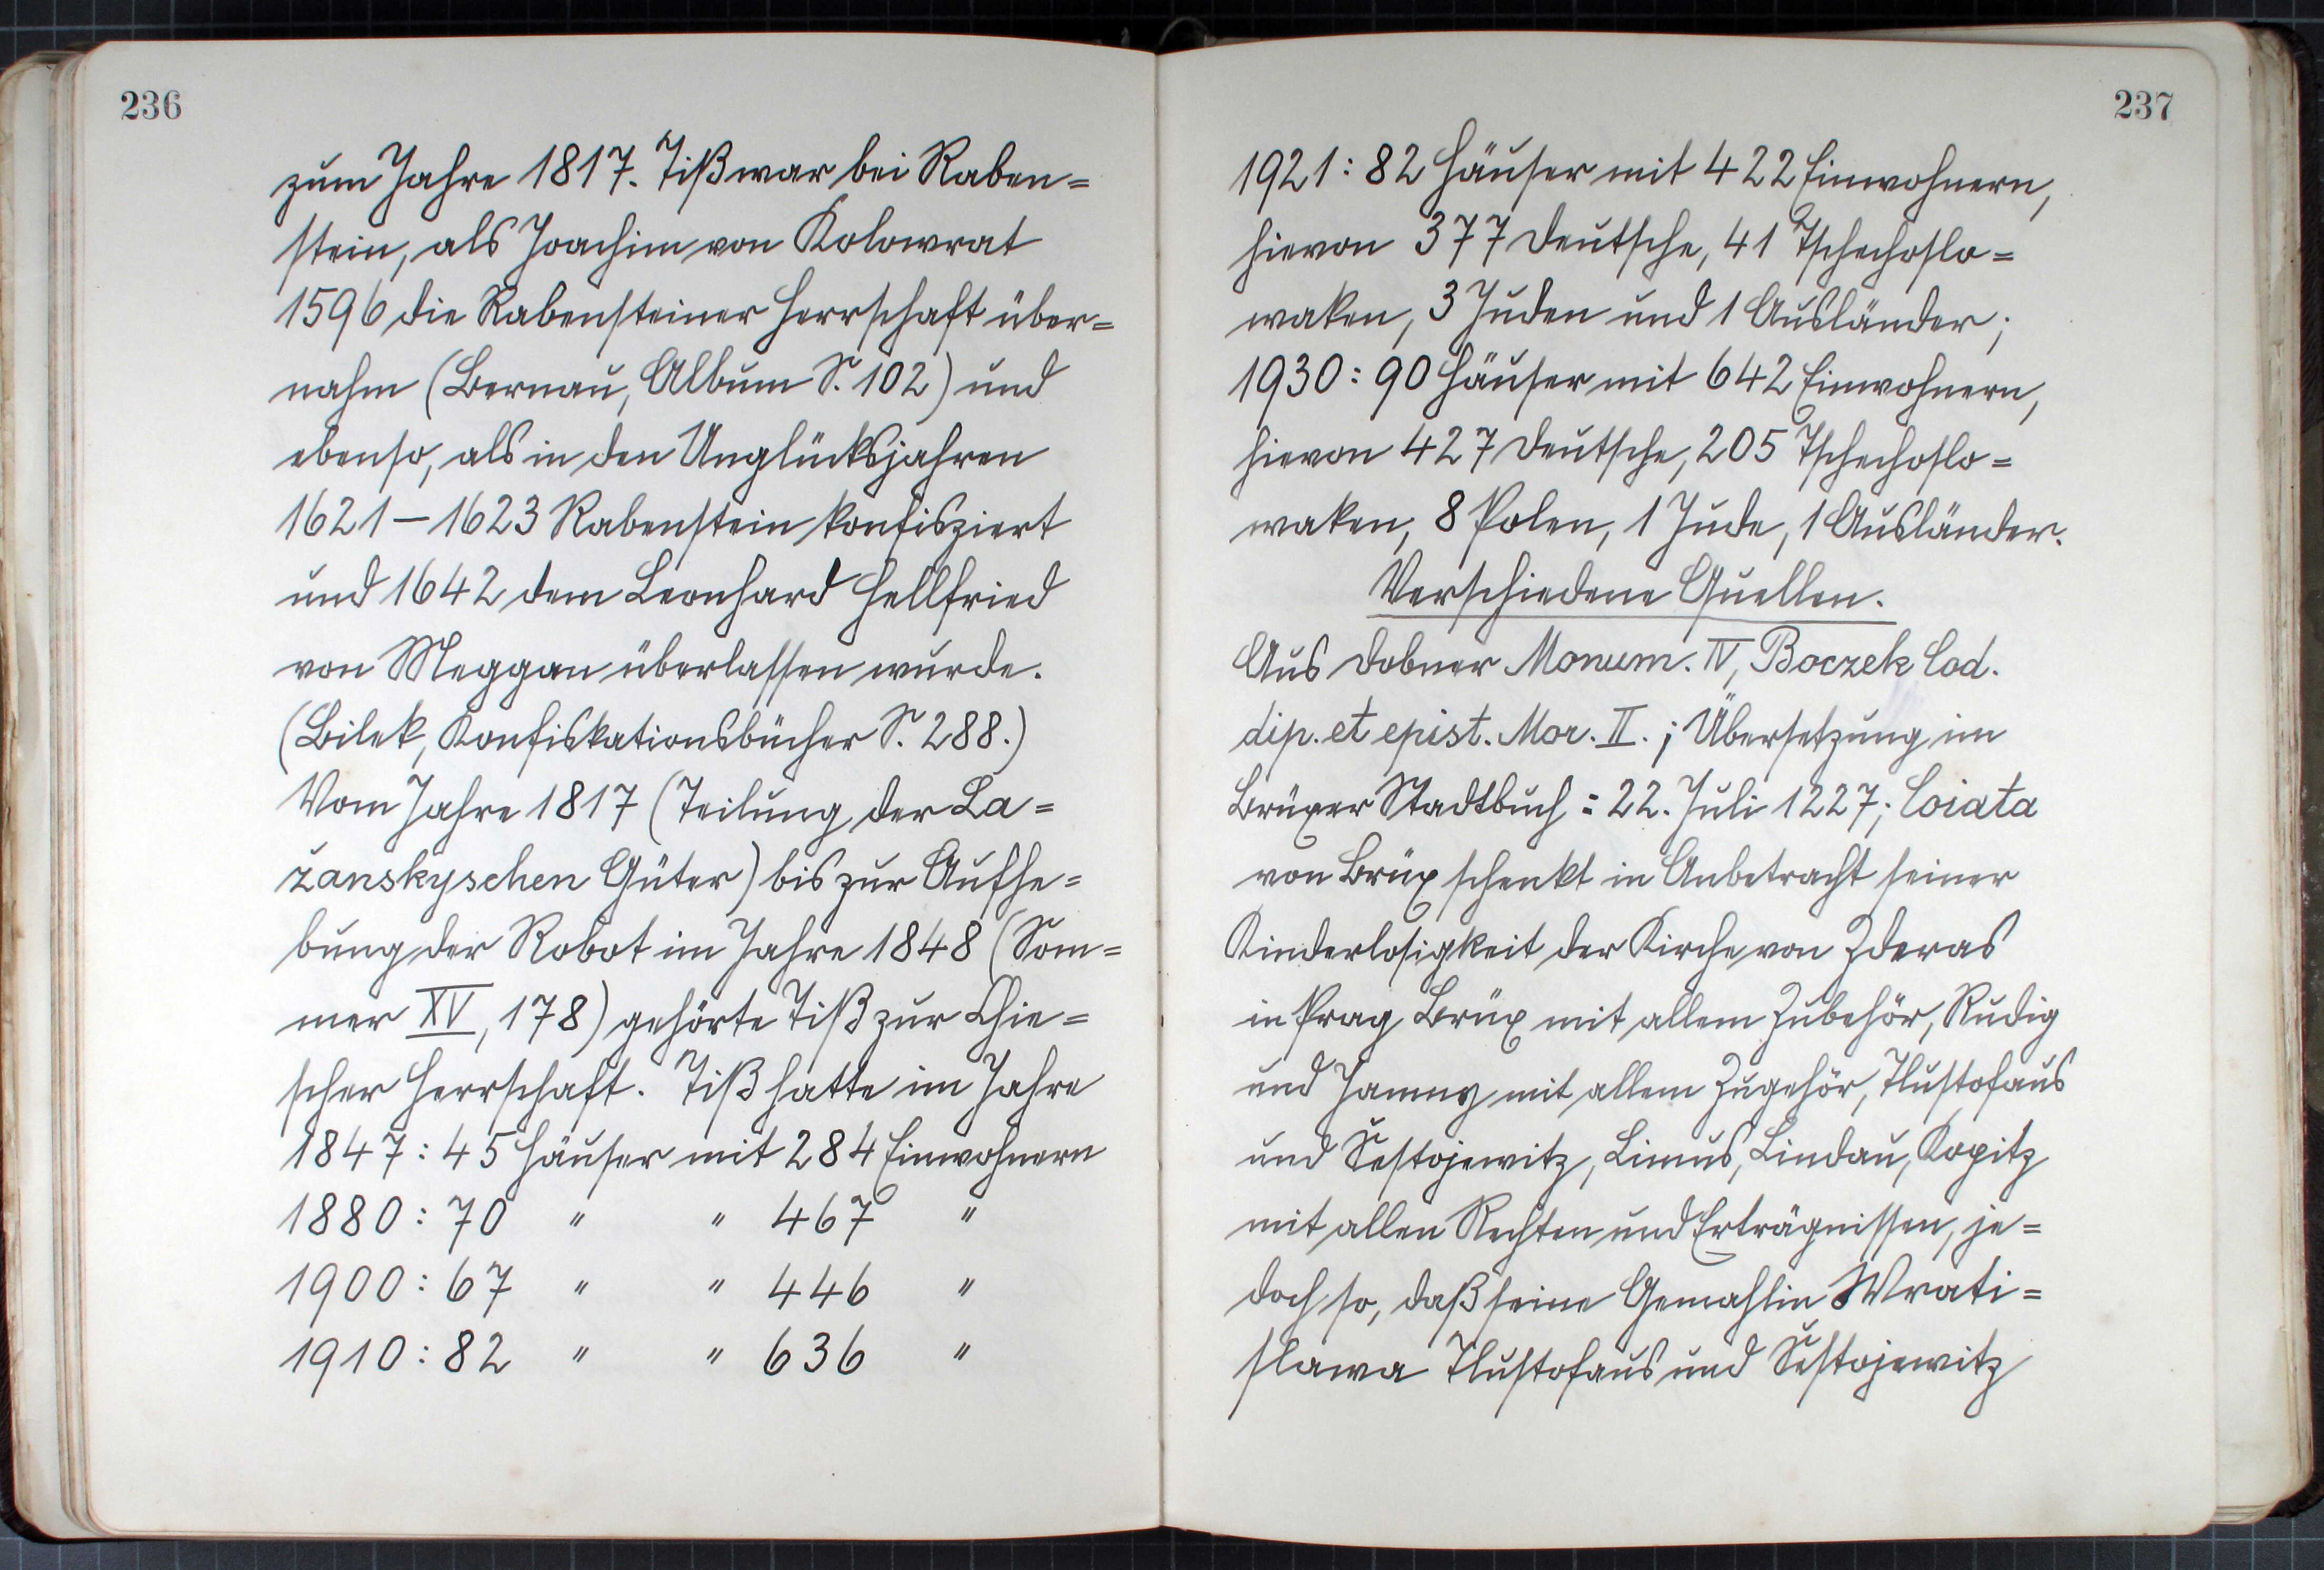 236
zum Jahre 1817. Tiß war bei Raben=
stein, als Joachim von Kolowrat
1596 die Rabensteiner Herrschaft über=
nahm (Bernau, Album S. 102) und
ebenso, als in den Unglücksjahren
1621 – 1623 Rabenstein konfisziert
und 1642 dem Leonhard Hellfried
von Meggau überlassen wurde.
(Bilek, Konfiskationsbücher S. 288.)
Vom Jahre 1817 (Teilung der La=
žanskyschen Güter) bis zur Aufhe=
bung der Robot im Jahre 1848 (Som=
mer XV, 178) gehörte Tiß zur Chie=
scher Herrschaft. Tiß hatte im Jahre
1847: 45 Häuser mit 284 Einwohnern
1880: 70 " " 467 "
1900: 67 " " 446 "
1910: 82 " " 636 "
237
1921: 82 Häuser mit 422 Einwohnern,
hievon 377 Deutsche, 41 Tschechoslo=
waken, 3 Juden und 1 Ausländer;
1930: 90 Häuser mit 642 Einwohnern,
hievon 427 Deutsche, 205 Tschechoslo=
waken, 8 Polen, 1 Jude, 1 Ausländer.
Verschiedene Quellen.
Aus Dobner Monum. IV, Boczek Cod.
dip. et epist. Mor. II.; Übersetzung im
Brüxer Stadtbuch: 22. Juli 1227; Coiata
von Brüx schenkt in Anbetracht seiner
Kinderlosigkeit der Kirche von Zderas
in Prag Brüx mit allem Zubehör, Rudig
und Jamny mit allem Zugehör, Tlustofaus
und Šestojewitz, Limus, Lindau, Kopitz
mit allen Rechten und Erträgnissen, je=
doch so, daß seine Gemahlin Wrati=
slawa Tlustofaus und Šestojewitz